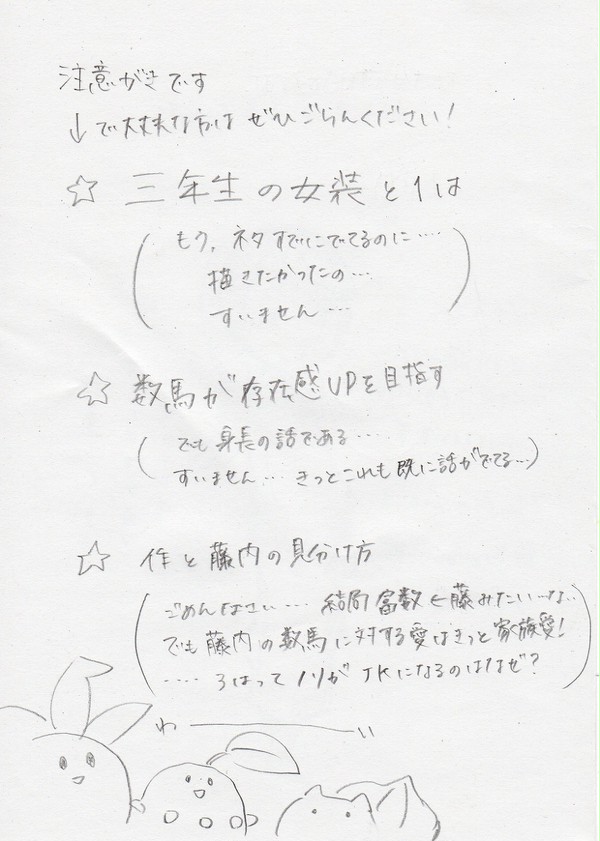 注意がきです
↓で大丈夫な方は ぜひごらんください!
☆ 三年生の女装と1は
(もう、ネタすでにでてるのに‥‥
描きたかったの…
すいません…)
☆ 数馬が存在感UPを目指す
(でも身長の話である…
すいません… きっとこれも既に話がでてる…)
☆ 作と藤内の見分け方
(ごめんなさい… 結局富数←藤みたい…な.
でも藤内の数馬に対する愛はきっと家族愛!
‥‥ 3はってノリがJKになるのはなぜ?)
わ――――い